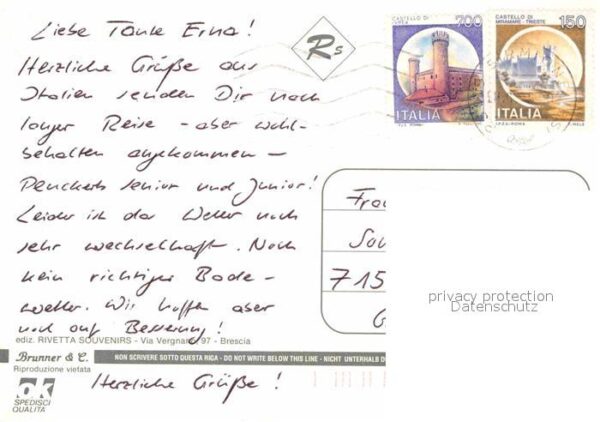 Liebe Tante Erna!
Herzliche Grüße aus
Italien senden Dir nach
langer Reise - aber wohl-
behalten angekommen -
Penckerts senior und junior!
Leider ist das Wetter noch
sehr wechselhaft. Noch
kein richtiges Bade-
wetter. Wir hoffen aber
noch auf Besserung!
Herzliche Grüße!
Rs
CASTELLO DI
IVREA
700
ITALIA
CASTELLO DI
MIRAMARE - TRIESTE
150
ITALIA
Frau
715
privacy protection
Datenschutz
ediz. RIVETTA SOUVENIRS - Via Vergnano, 97 - Brescia
Brunner & C.
Riproduzione vietata
NON SCRIVERE SOTTO QUESTA RIGA - DO NOT WRITE BELOW THIS LINE - NICHT UNTERHALB D
ok
SPEDISCI
QUALITÀ